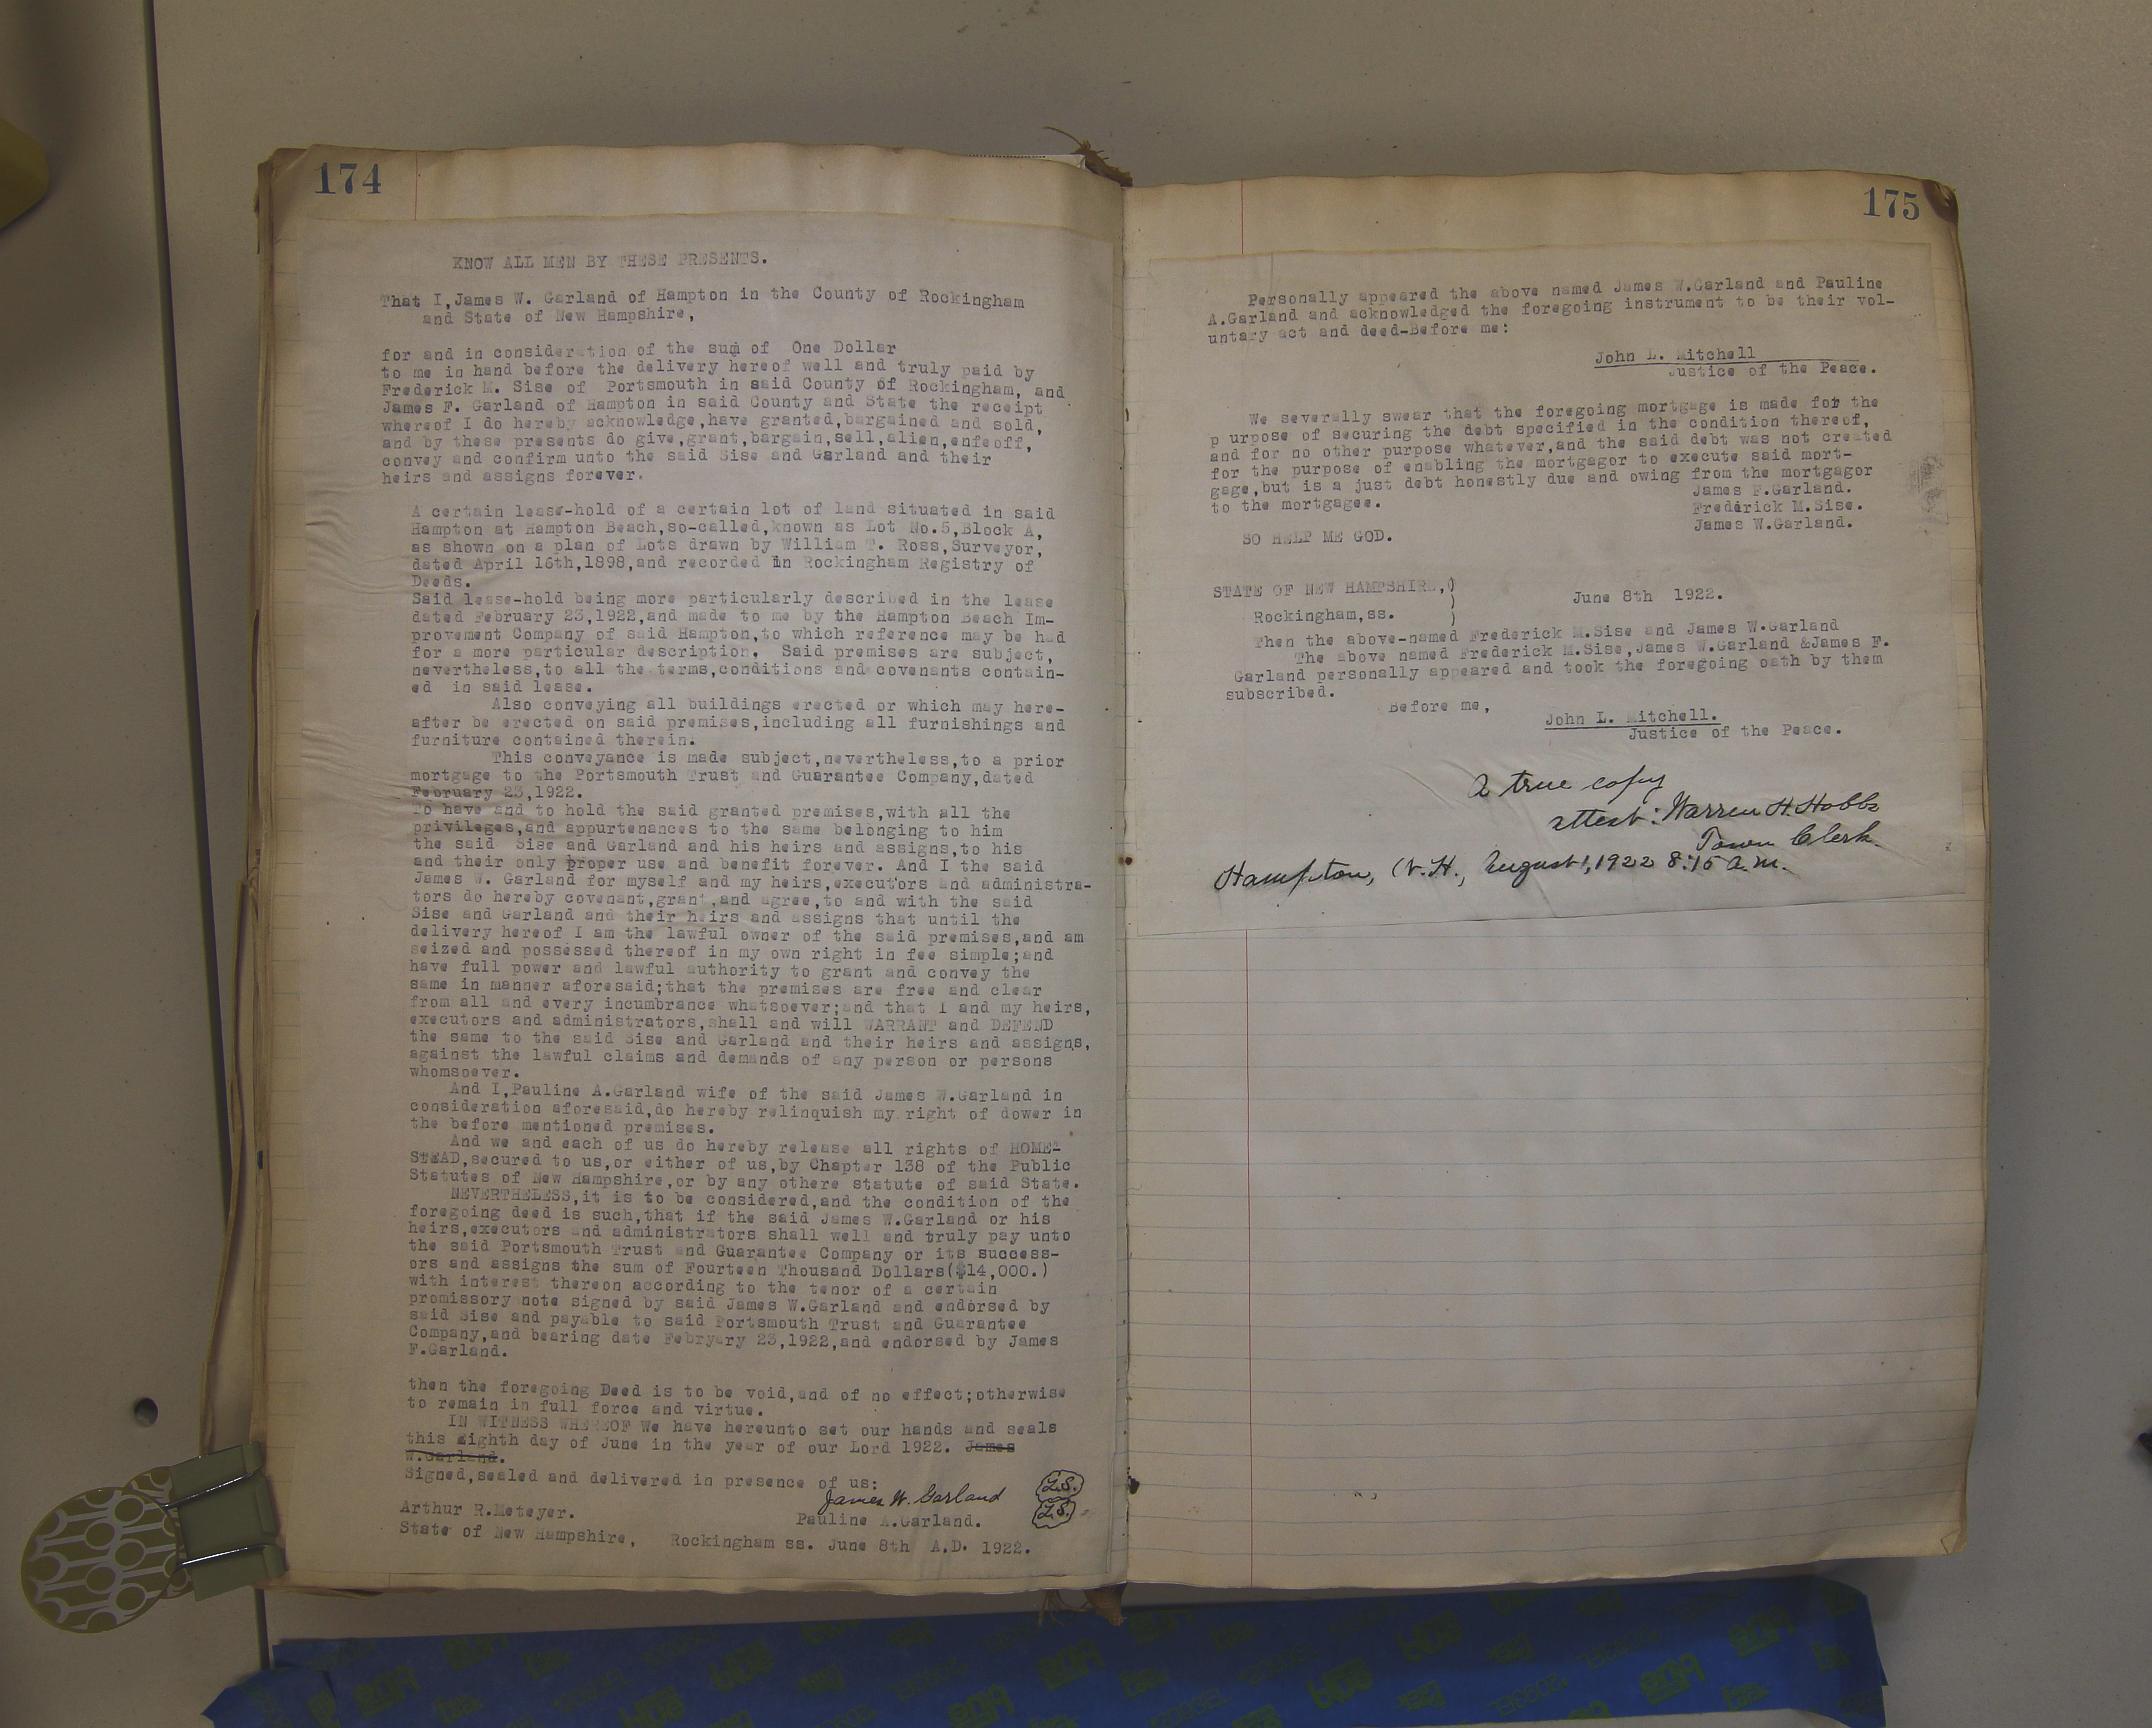 174
KNOW ALL MEN BY THESE PRESENTS.
That I,James W. Garland of Hampton in the County of Rockingham
and State of New Hampshire,
for and in consideration of the sum of One Dollar
to me in hand before the delivery hereof well and truly paid by
Frederick M. Sise of Portsmouth in said County of Rockingham, and
James F. Garland of Hampton in said County and State the receipt
whereof I do hereby acknowledge,have granted,bargained and sold,
and by these presents do give,grant,bargain,sell,alien,enfeoff,
convey and confirm unto the said Sise and Garland and their
heirs and assigns forever.
A certain lease-hold of a certain lot of land situated in said
Hampton at Hampton Beach,so-called,known as Lot No.5,Block A,
as shown on a plan of Lots drawn by William T. Ross,Surveyor,
dated April 16th,1898,and recorded in Rockingham Registry of
Deeds.
Said lease-hold being more particularly described in the lease
dated February 23,1922,and made to me by the Hampton Beach Im-
provement Company of said Hampton,to which reference may be had
for a more particular description. Said premises are subject,
nevertheless,to all the terms,conditions and covenants contain-
ed in said lease.
Also conveying all buildings erected or which may here-
after be erected on said premises,including all furnishings and
furniture contained therein.
This conveyance is made subject,nevertheless,to a prior
mortgage to the Portsmouth Trust and Guarantee Company,dated
February 23,1922.
To have and to hold the said granted premises,with all the
privileges,and appurtenances to the same belonging to him
the said Sise and Garland and his heirs and assigns,to his
and their only proper use and benefit forever. And I the said
James W. Garland for myself and my heirs,executors and administra-
tors do hereby covenant,grant,and agree,to and with the said
Sise and Garland and their heirs and assigns that until the
delivery hereof I am the lawful owner of the said premises,and am
seized and possessed thereof in my own right in fee simple;and
have full power and lawful authority to grant and convey the
same in manner aforesaid;that the premises are free and clear
from all and every incumbrance whatsoever;and that I and my heirs,
executors and administrators,shall and will WARRANT and DEFEND
the same to the said Sise and Garland and their heirs and assigns,
against the lawful claims and demands of any person or persons
whomsoever.
And I,Pauline A.Garland wife of the said James W.Garland in
consideration aforesaid,do hereby relinquish my right of dower in
the before mentioned premises.
And we and each of us do hereby release all rights of HOME-
STEAD,secured to us,or either of us,by Chapter 138 of the Public
Statutes of New Hampshire,or by any othere statute of said State.
NEVERTHELESS,it is to be considered,and the condition of the
foregoing deed is such,that if the said James W.Garland or his
heirs,executors and administrators shall well and truly pay unto
the said Portsmouth Trust and Guarantee Company or its success-
ors and assigns the sum of Fourteen Thousand Dollars($14,000.)
with interest thereon according to the tenor of a certain
promissory note signed by said James W.Garland and endorsed by
said Sise and payable to said Portsmouth Trust and Guarantee
Company,and bearing date Febryary 23,1922,and endorsed by James
F.Garland.
then the foregoing Deed is to be void,and of no effect;otherwise
to remain in full force and virtue.
IN WITNESS WHEREOF We have hereunto set our hands and seals
this eighth day of June in the year of our Lord 1922. James
W.Garland.
Signed,sealed and delivered in presence of us:
James W. Garland L.S.
Arthur R.Meteyer. Pauline A.Garland. L.S.
State of New Hampshire, Rockingham ss. June 8th A.D. 1922.
175
Personally appeared the above named James W.Garland and Pauline
A.Garland and acknowledged the foregoing instrument to be their vol-
untary act and deed-Before me:
John L. Mitchell
Justice of the Peace.
We severally swear that the foregoing mortgage is made for the
p urpose of securing the debt specified in the condition thereof,
and for no other purpose whatever,and the said debt was not created
for the purpose of enabling the mortgagor to execute said mort-
gage,but is a just debt honestly due and owing from the mortgagor
to the mortgagee. James F.Garland.
Frederick M.Sise.
James W.Garland.
SO HELP ME GOD.
STATE OF NEW HAMPSHIRE,)
June 8th 1922.
Rockingham,ss. )
Then the above-named Frederick M.Sise and James W.Garland
The above named Frederick M.Sise,James W.Garland &James F.
Garland personally appeared and took the foregoing oath by them
subscribed.
Before me,
John L. Mitchell.
Justice of the Peace.
A true copy
attest: Warren H. Hobbs
Town Clerk.
Hampton, N.H., August 1, 1922 8:15 a.m.